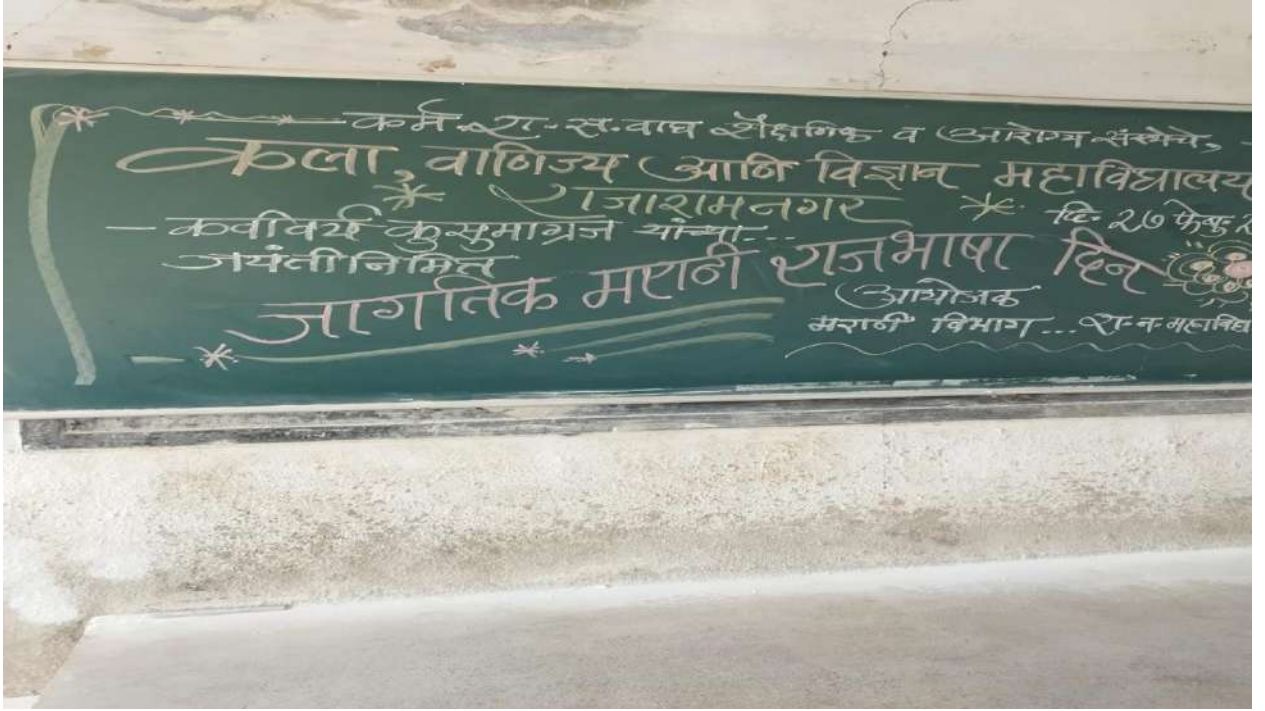 कर्म. रा. स. वाघ शैक्षणिक व आरोग्य संस्थेचे,
कला, वाणिज्य आणि विज्ञान महाविद्यालय
राजारामनगर
दि. २७ फेब्रु.
कवीवर्य कुसुमाग्रज यांच्या...
जयंतीनिमित्त
जागतिक मराठी राजभाषा दिन
आयोजक
मराठी विभाग... रा. न. महाविद्या